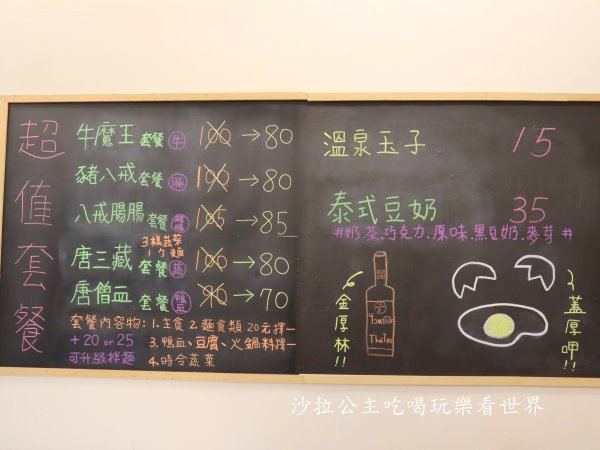 超值套餐
牛魔王 套餐 牛 100→80
豬八戒 套餐 豚 100→80
八戒腸腸 套餐 105→85
3樣蔬菜
1份麵
唐三藏 套餐 蔬 100→80
唐僧血 套餐 鴨血 90→70
套餐內容物: 1.主食 2.麵食類 20元擇一
+20 or 25 3.鴨血、豆腐、火鍋料擇一
可升級拌麵 4.時令蔬菜
溫泉玉子 15
泰式豆奶 35
#奶茶.巧克力.原味.黑豆奶.麥芽#
金厚林!!
Thaitea
蓋厚呷!!
沙拉公主吃喝玩樂看世界